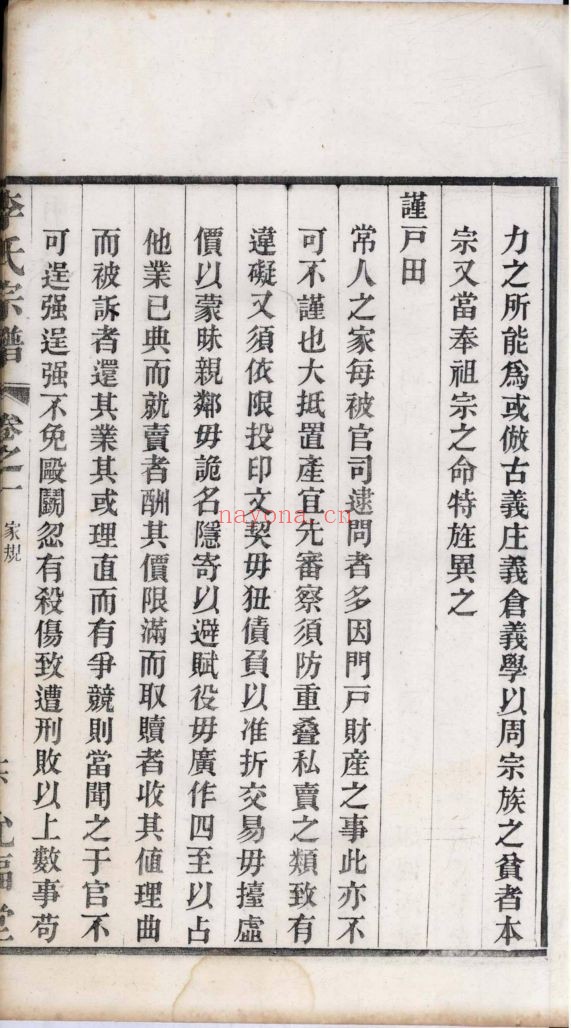 力之所能爲或倣古義庄義倉義學以周宗族之貧者本
宗又當奉祖宗之命特旌異之
謹戸田
常人之家每被官司逮問者多因門戸財産之事此亦不
可不謹也大抵置產宜先審察須防重疊私賣之類致有
違礙又須依限投印文契毋狃債負以准折交易毋擡虛
價以蒙昧親鄰毋詭名隱寄以避賦役毋廣作四至以占
他業已典而就賣者酬其價限滿而取贖者收其値理曲
而被訴者還其業其或理直而有爭競則當聞之于官不
可逞强逞强不免毆鬬忽有殺傷致遭刑敗以上數事苟
李氏宗譜 卷之一 家規 允福堂
nayona.cn